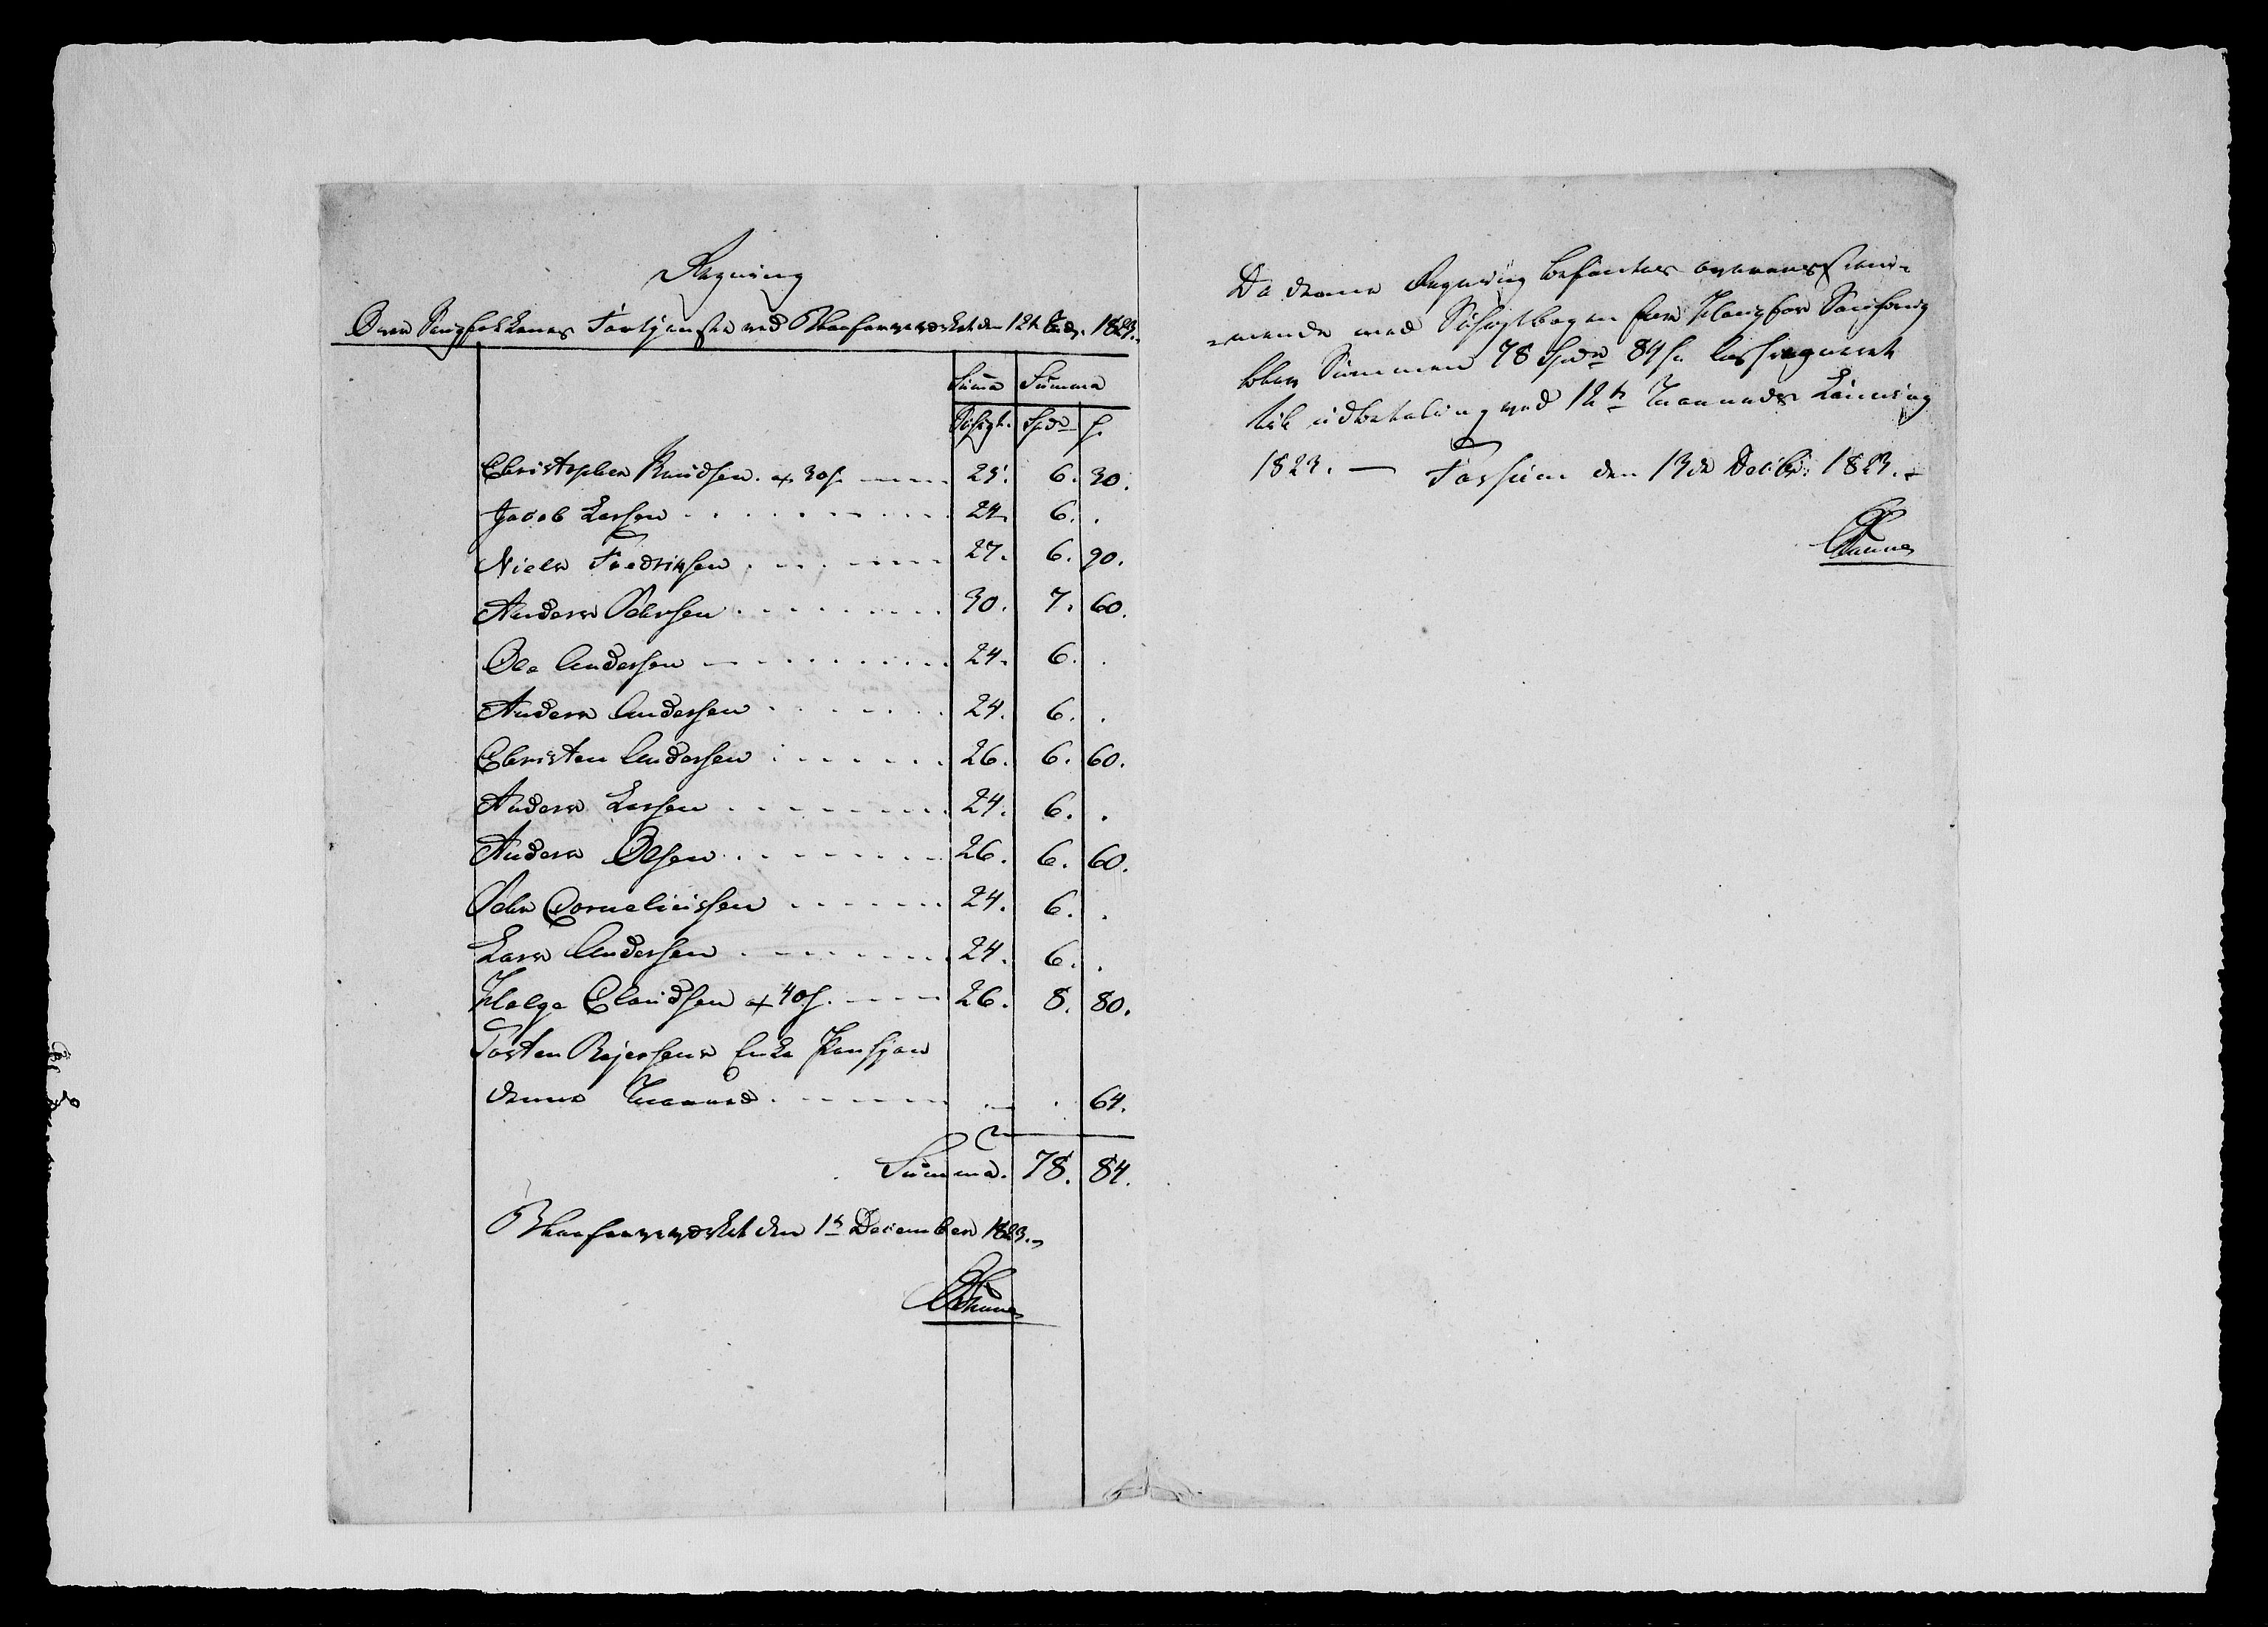 Regning
Over Bergfolkenes Fortjeneste ved Blaafarveverket den 12te Maaned 1823.
Suma Summa
Schigt. Spd s.
Christopher Knudsen. a 30 s. 25. 6. 30.
Jacob Larsen 24. 6. .
Niels Fredriksen 27. 6. 90.
Anders Pedersen 30. 7. 60.
Ole Andersen 24. 6. .
Anders Andersen 24. 6. .
Christen Andersen 26. 6. 60.
Anders Larsen 24. 6. .
Anders Olsen 26. 6. 60.
Peder Corneliussen 24. 6. .
Lars Andersen 24. 6. .
Helge Claudsen a 40 s. 26. 8. 80.
Torsten Rejersens Enke Pension
denne Maaned 64.
Summa. 78. 84.
Blaafarveverket den 1te December 1823.
Da denne Regning befindes overensstem-
mende med Schigtbogen
blev Summen 78 Spd 84 s.
til udbetaling ved 12te Maaneds Lønning
1823. — Fossum den 13de Decbr. 1823.